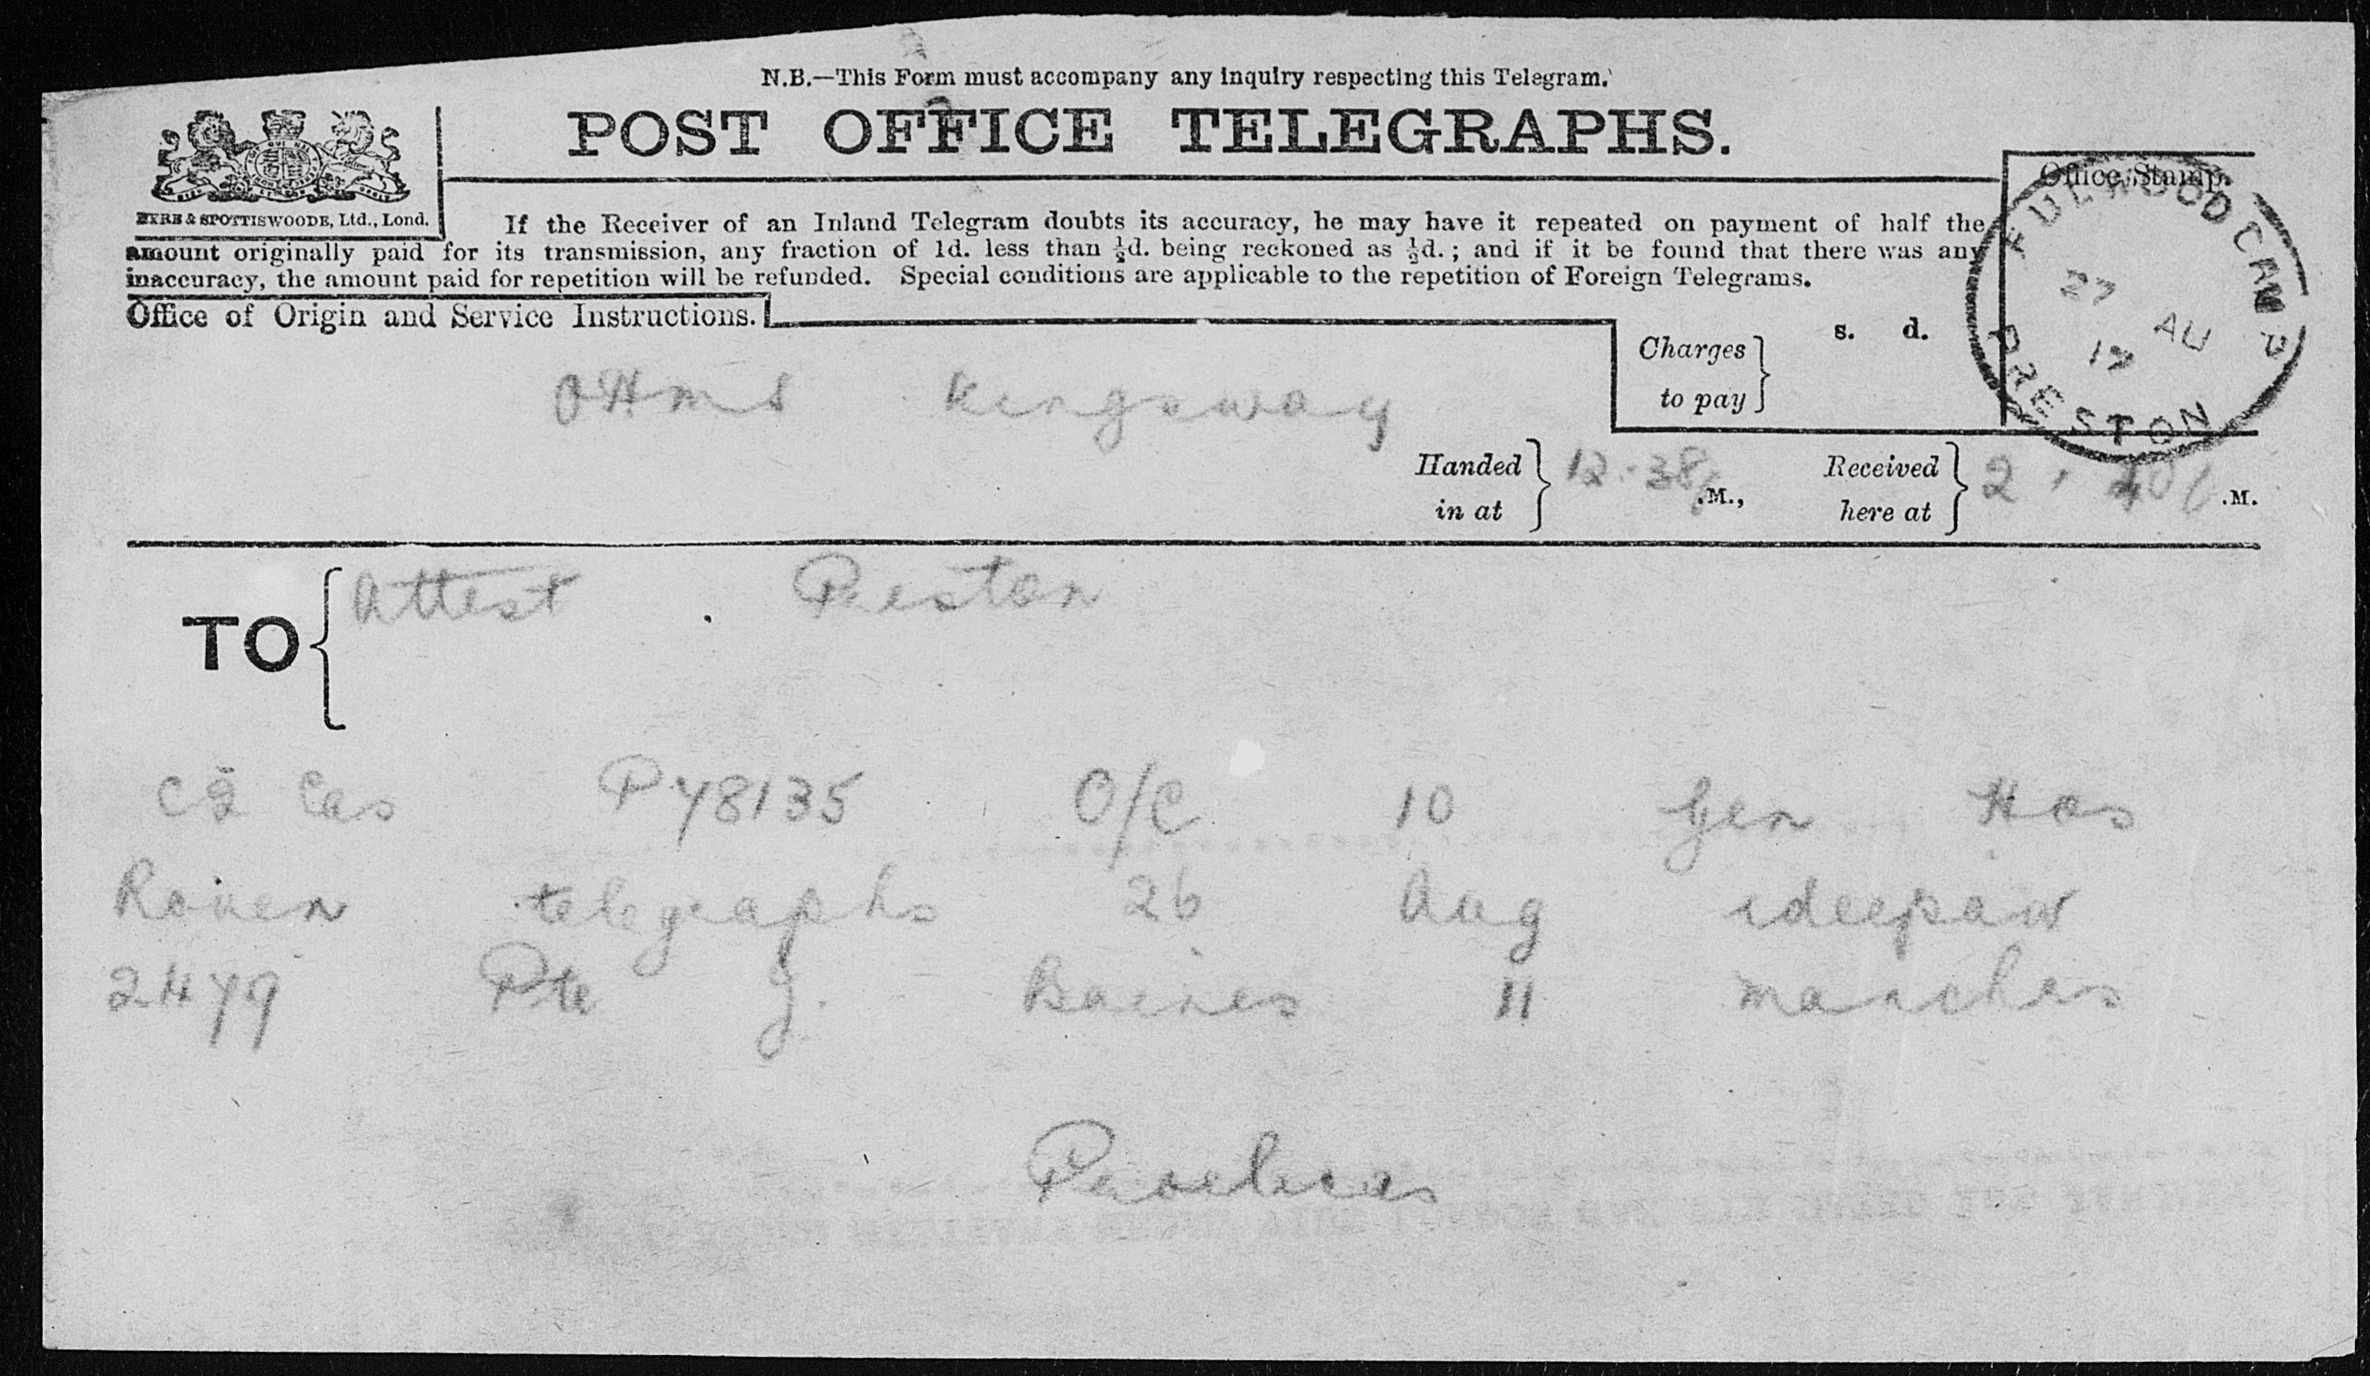 N.B.—This Form must accompany any Inquiry respecting this Telegram.
POST OFFICE TELEGRAPHS.
EYRE & SPOTTISWOODE, Ltd., Lond.
If the Receiver of an Inland Telegram doubts its accuracy, he may have it repeated on payment of half the
amount originally paid for its transmission, any fraction of 1d. less than ½d. being reckoned as ½d.; and if it be found that there was any
inaccuracy, the amount paid for repetition will be refunded. Special conditions are applicable to the repetition of Foreign Telegrams.
Office of Origin and Service Instructions.
Office Stamp.
FULWOOD CAMP
PRESTON
27 AU 17
Charges to pay
s. d.
OHMS Kingsway
Handed in at 12.38 .M.,
Received here at 2 .M.
TO
Attest Preston
C2 Cas PY8135 O/C 10 Gen Hos
Rouen telegraphs 26 Aug
2479 Pte J. Baines 11 Manches